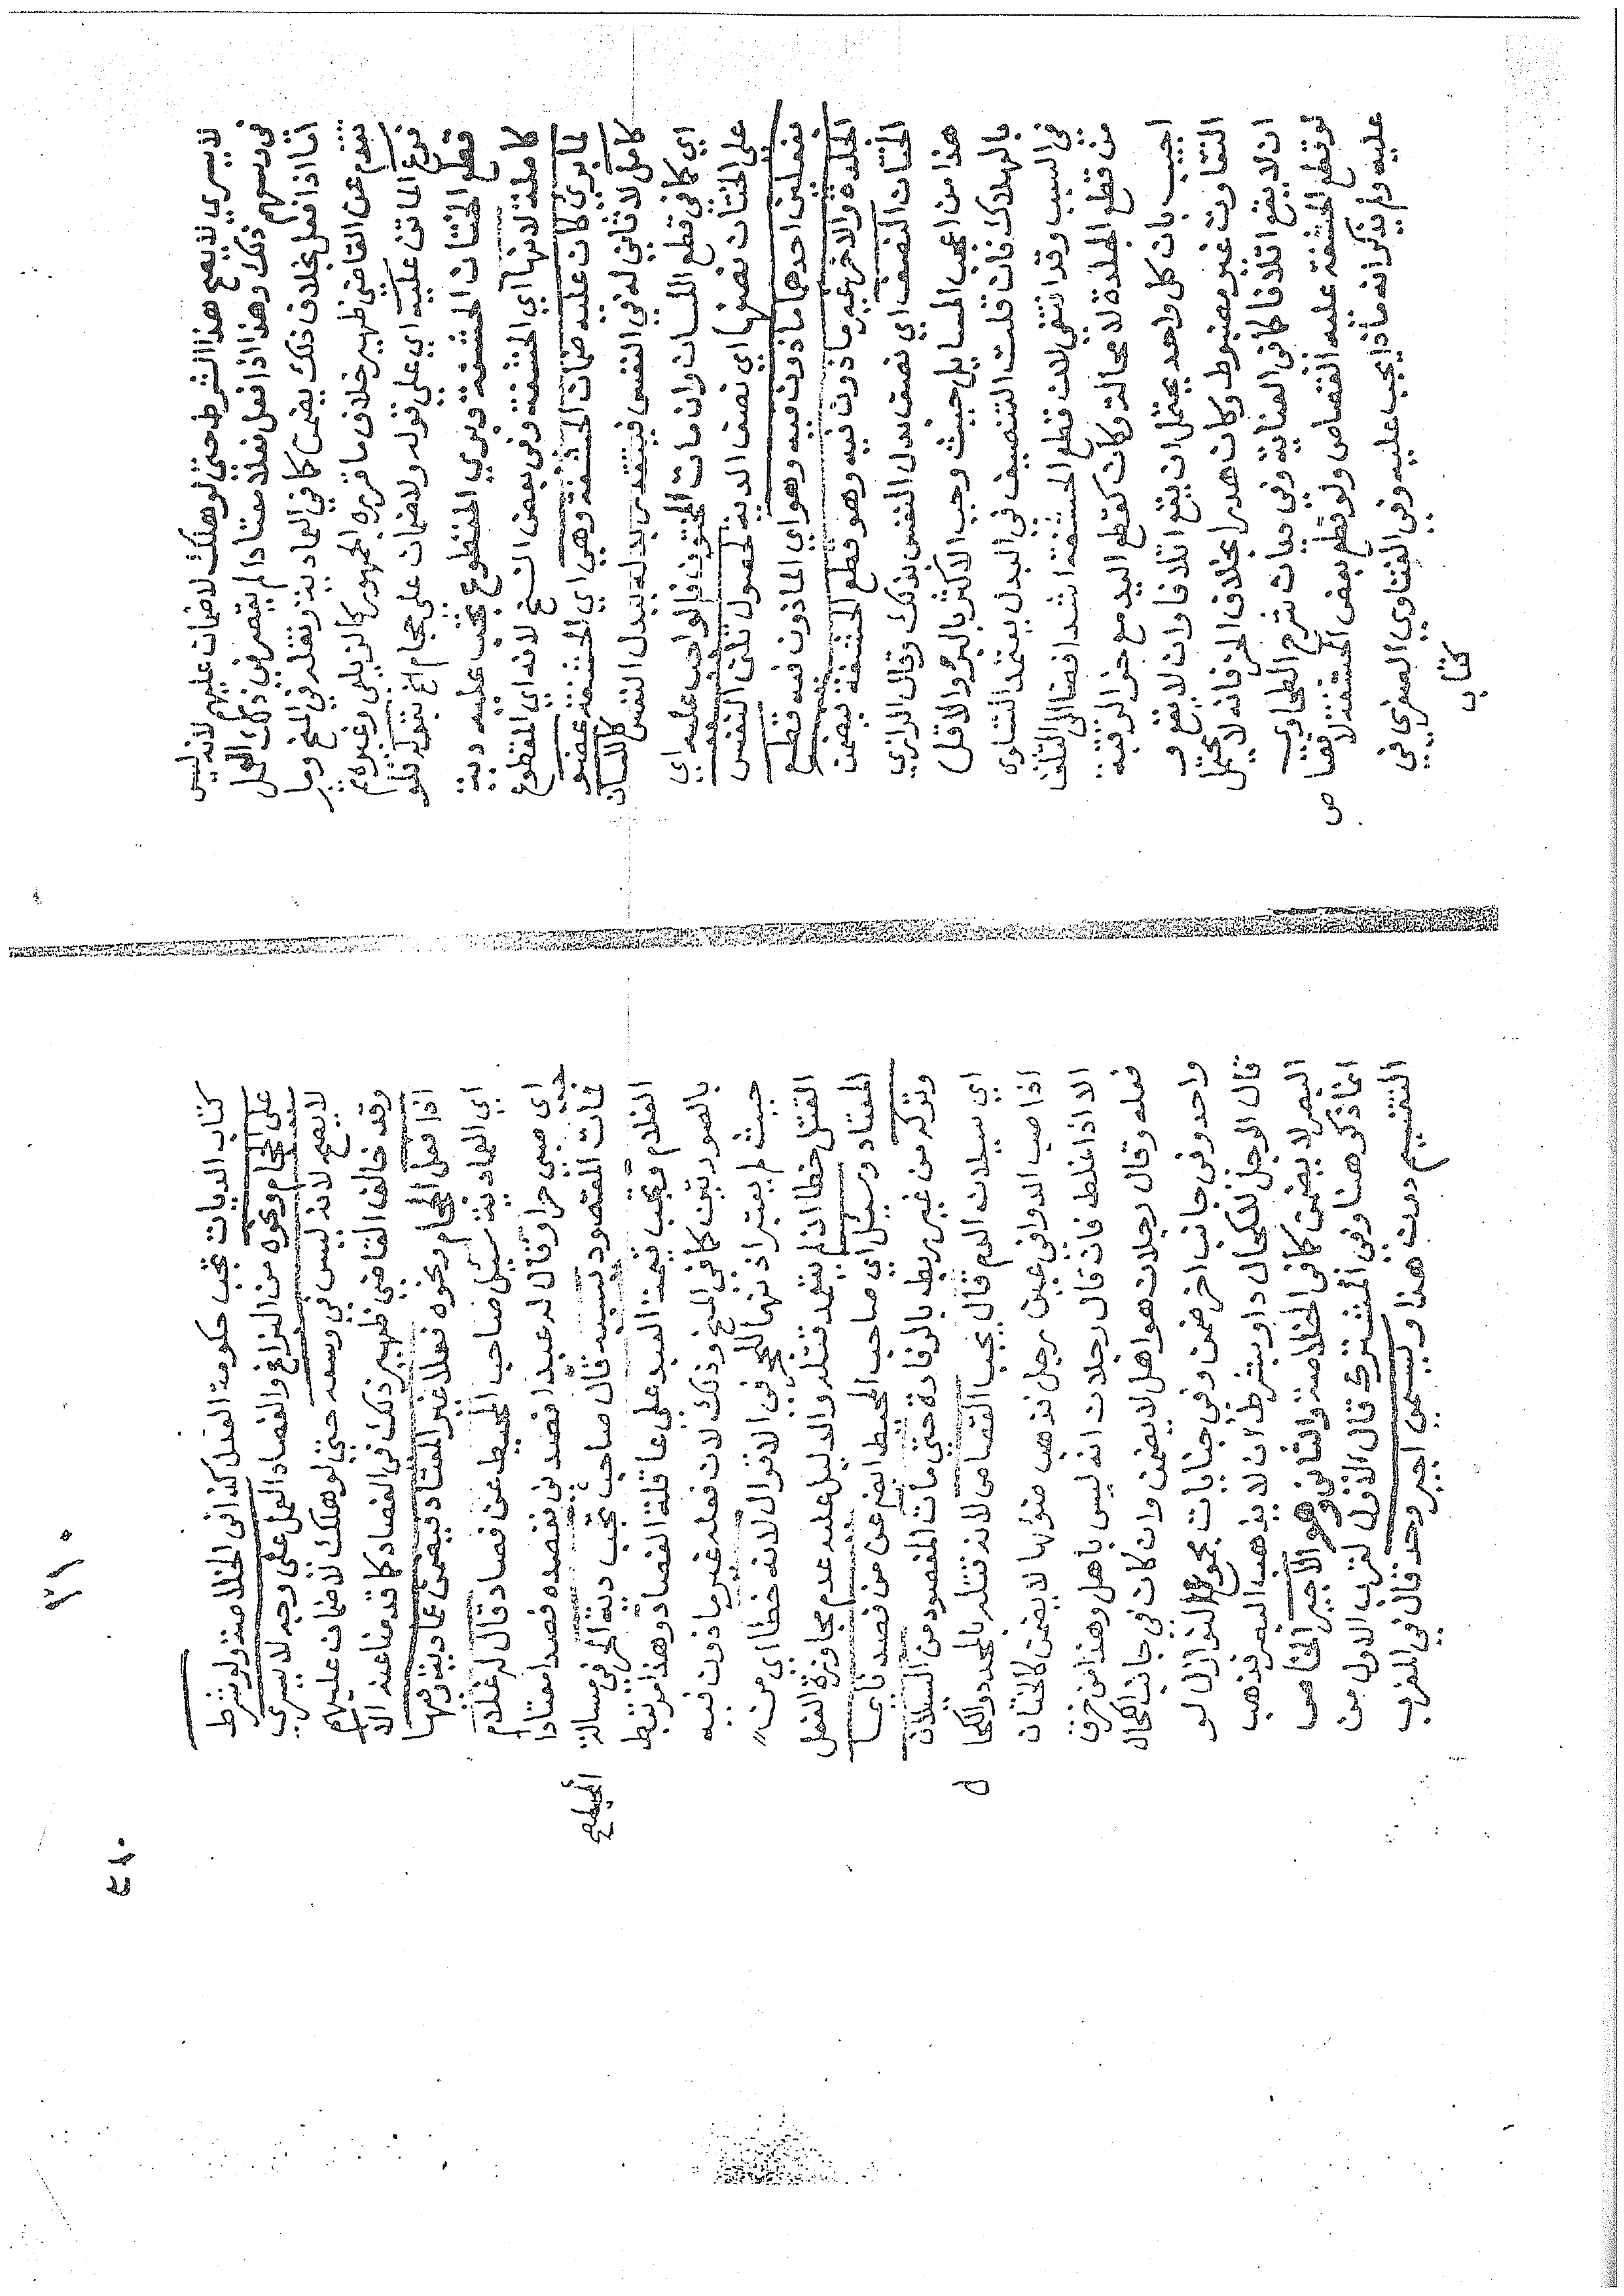 لا يسري لا يصح هذا الشرط حتى لو هلك لا ضمان عليهم لانه ليس
في وسعهم ذلك وهذا اذا فعل فعلا معتادا لم يقصر في ذلك العمل
اما اذا فعل بخلاف ذلك يضمن كما في العمادية ونقله في المنح وما
تقدم عن القاضي ظهير خلاف ما قرره الجمهور كالزيلعي وغيره ثم
فرع الماتن عليه اي على قوله ولا ضمان على حجام الخ بقوله فلو
قطع الختان الحشفة وبري المقطوع يجب عليه دية
كاملة لانها اي الحشفة وفي بعض النسخ لانه اي المقطوع
لما بري كان عليه ضمان الحشفة وهي اي الحشفة عضو
كامل لا ثاني له في النفس فيتقدر بدله ببدل النفس كاللسان
اي كما في قطع اللسان وان مات المختون فالواجب عليه اي
على الختان نصفها اي نصف الدية لحصول تلف النفس
بفعلين احدهما ماذون فيه وهو اي الماذون فيه قطع
الجلدة والاخر غير ماذون فيه وهو قطع الحشفة فيضمن
الختان النصف اي نصف بدل النفس بذلك وقال الرازي
هذا من اعجب المسايل حيث وجب الاكثر بالبرؤ والاقل
بالهلاك فان قلت التنصيف في البدل يعتمد التساوى
في السبب وقد انتفى لان قطع الحشفة اشد افضا الى التلف
من قطع الجلدة لا محالة وكان كقطع اليد مع حز الرقبة
اجيب بان كل واحد يحتمل ان يقع اتلافا وان لا يقع و
التفاوت غير مضبوط وكان هدرا بخلاف الحز فانه لا يحتمل
ان لا يقع اتلافا كما في العناية وفي ديات شرح الطحاوي
لو قطع الحشفة عليه القصاص ولو قطع بعض الحشفة لا قصاص
عليه ولم يذكر انه ماذا يجب عليه وفي الفتاوي الصغرى في
كتاب
٣١٠
٤١٠
كتاب الديات تجب حكومة العدل كذا في الخلاصة ولو شرط
على الحجام ونحوه من البزاغ والفصاد العمل على وجه لا يسري
لا يصح لانه ليس في وسعه حتى لو هلك لا ضمان عليهم
وقد خالف القاضي ظهير ذلك في الفصاد كما قدمنا عنه الا
اذا فعل الحجام ونحوه فعلا غير المعتاد فيضمن عمادية وفيها
اي العمادية سئيل صاحب المحيط عن فصاد قال له غلام
اي صبي حرا وقال له عبد افصدني ففصده فصدا معتادا
فمات المفصود بسببه قال صاحب المحيط تجب دية الحر في مسالة
الغلام وتجب قيمة العبد على عاقلة الفصاد وهذا مرتبط
بالصورتين كما في المنح وذلك لان فعله غير ماذون فيه
حيث لم يعتبر اذنهما للحجر في الاقوال لانه خطا اي من
القتل خطا اذ لم يتعمد قتله والدليل عليه عدم مجاوزة الفعل
المعتاد وسئيل اي صاحب المحيط ايضا عن من فصد نائما
وتركه من غير ربطه بالرفادة حتى مات المفصود من السيلان
اي سيلان الدم قال يجب القصاص لانه قتله بالمحدد والكحال
اذا صب الدوا في عين رجل فذهب ضوئها لا يضمن كالختان
الا اذا غلط فان قال رجلان انه ليس باهل وهذا من خرق
فعله وقال رجلان هو اهل لا يضمن وان كان في جانب الكحال
واحد وفي جانب اخر ضمن وفي جنايات مجموع النوازل لو
قال الرجل للكحال داو بشرط ان لا يذهب البصر فذهب
البصر لا يضمن كما في الخلاصة والثاني وهو الاجير الخاص
انما ذكر هنا وفي المشترك قال الاول لقرب الاول من
التقسيم دون هذا ويسمى اجير وحد قال في المغرب